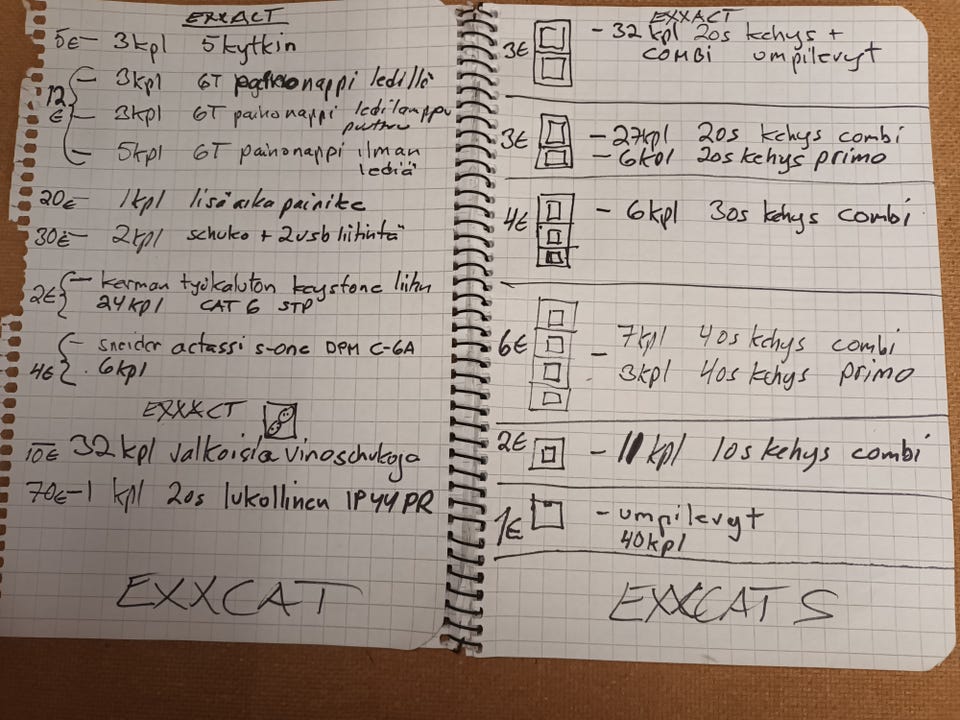 EXXACT
5€ – 3kpl 5kytkin
12€ – 3kpl 6T painonappi ledillä
– 3kpl 6T painonappi ledilamppu puuttuu
– 5kpl 6T painonappi ilman lediä
20€ – 1kpl lisäaika painike
30€ – 2kpl schuko + 2usb liitintä
2€ – kerman työkaluton keystone liitin
24kpl CAT 6 STP
4€ – sneider actassi s-one DPM C-6A
6kpl
EXXACT
10€ – 32kpl valkoisia vinoschukoja
70€ – 1 kpl 2os lukollinen IP44 PR
EXXCAT
EXXACT
3€ – 32 kpl 2os kehys +
COMBI umpilevyt
3€ – 27kpl 2os kehys combi
– 6kpl 2os kehys primo
4€ – 6kpl 3os kehys combi
6€ – 7kpl 4os kehys combi
3kpl 4os kehys primo
2€ – 11kpl 1os kehys combi
1€ – umpilevyt
40kpl
EXXCAT S